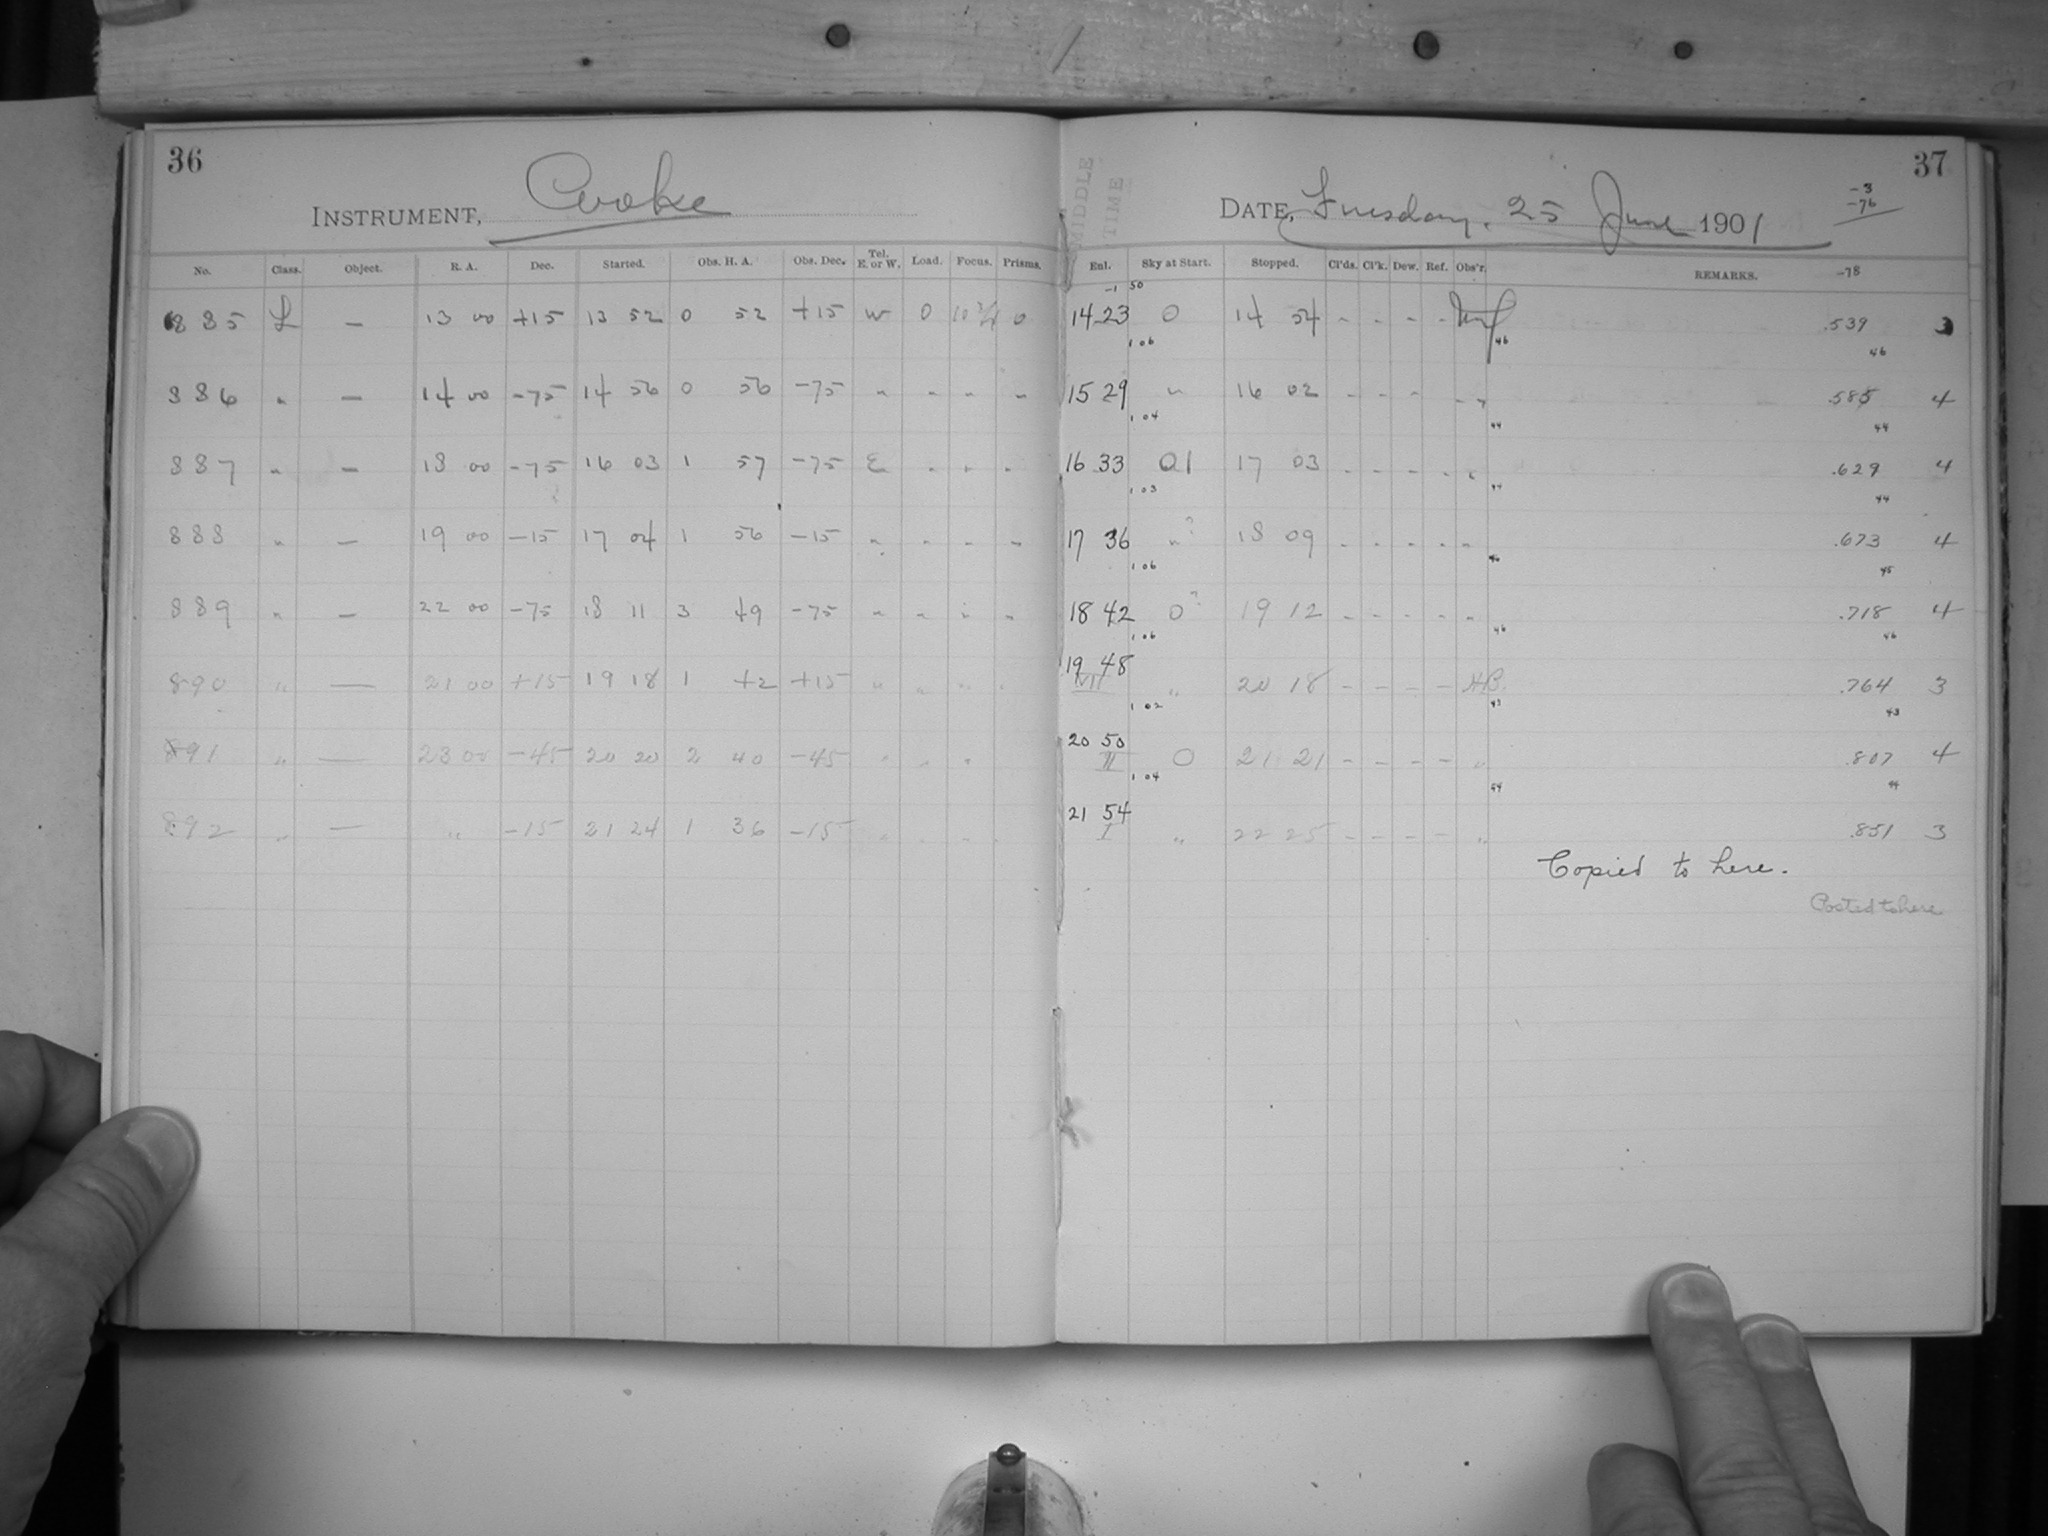 36
INSTRUMENT, Cooke
No. Class. Object. R. A. Dec. Started. Obs. H. A. Obs. Dec. Tel. E. or W. Load. Focus. Prisms.
885 L — 13 00 +15 13 52 0 52 +15 W 0 0
886 " — 14 00 -75 14 56 0 56 -75 " " " "
887 " — 18 00 -75 16 03 1 57 -75 E " " "
888 " — 19 00 -15 17 04 1 56 -15 " " " "
889 " — 22 00 -75 18 11 3 49 -75 " " " "
890 " — 21 00 +15 19 18 1 42 +15 " " " "
891 " — 23 00 -45 20 20 2 40 -45 " " "
892 " — " -15 21 24 1 36 -15 " " "
37
MIDDLE
TIME
DATE, Tuesday, 25 June 1901
-3
-76
Enl. Sky at Start. Stopped. Cl'ds. Cl'k. Dew. Ref. Obs'r. REMARKS. -78
-1 50
14 23 0 14 54 - - - - .539 3
1 06 46 46
15 29 " 16 02 - - - - " .585 4
1 04 44 44
16 33 01 17 03 - - - - " .629 4
1 03 44 44
17 36 "? 18 09 - - - - " .673 4
1 06 45
18 42 0? 19 12 - - - - " .718 4
1 06 46 46
19 48
" 20 18 - - - - .764 3
1 02 43 43
20 50
II 0 21 21 - - - - " .807 4
1 04 44 44
21 54
I " 22 25 - - - - " .851 3
Copied to here.
Posted to here